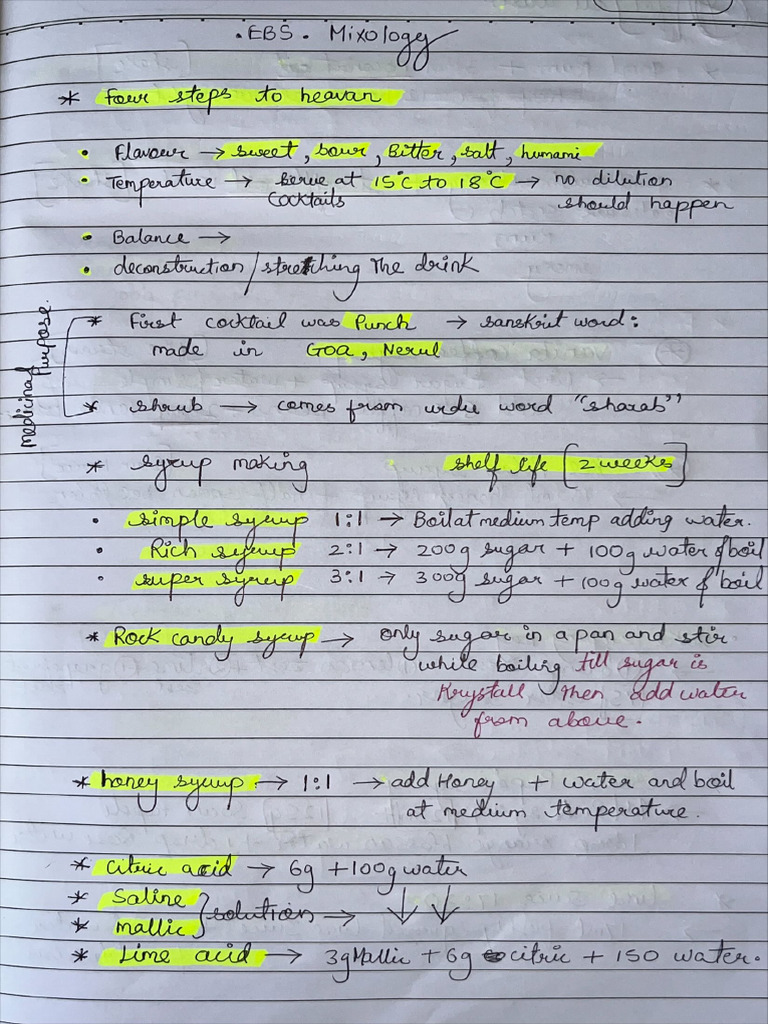 .EBS. Mixology
* four steps to heavan
• Flavour → sweet, sour, Bitter, salt, humami
• Temperature → serve at 15°C to 18°C → no dilution
cocktails should happen
• Balance →
• deconstruction/stretching The drink
* First cocktail was Punch → sanskrit word:
made in Goa, Nerul
* shrub → comes from urdu word "sharab"
medicinal purpose.
* syrup making shelf life [2 weeks]
• simple syrup 1:1 → Boil at medium temp adding water.
• Rich syrup 2:1 → 200g sugar + 100g water & boil
• super syrup 3:1 → 300g sugar + 100g water & boil
* Rock candy syrup → only sugar in a pan and stir
while boiling till sugar is
Krystall then add water
from above.
* honey syrup → 1:1 → add Honey + water and boil
at medium temperature.
* citric acid → 6g + 100g water
* Saline } solution → ↓ ↓
* mallic
* Lime acid → 3g Mallic + 6g citric + 150 water.